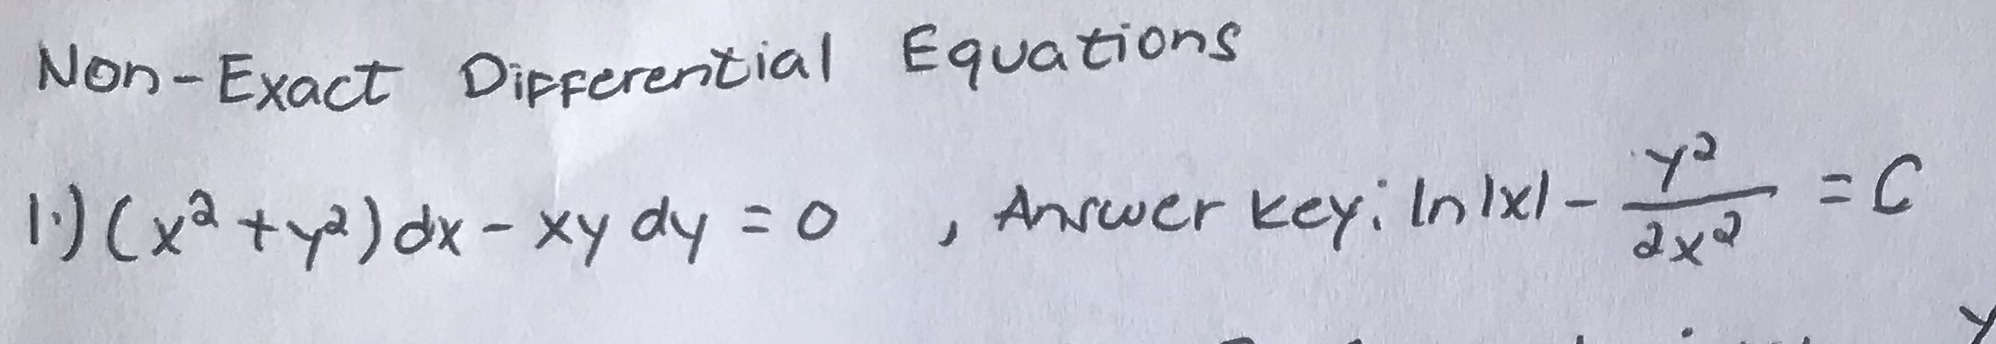 Non-Exact Differential Equations
1.) (x² + y²) dx - xy dy = 0 , Answer key: ln |x| - y²/2x² = C